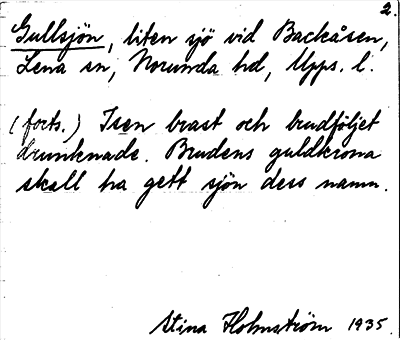 2.
Gullsjön, liten sjö vid Backåsen,
Lena sn, Norunda hd, Upps. l.
(forts.) Isen brast och brudföljet
drunknade. Brudens guldkrona
skall ha gett sjön dess namn.
Stina Holmström 1935